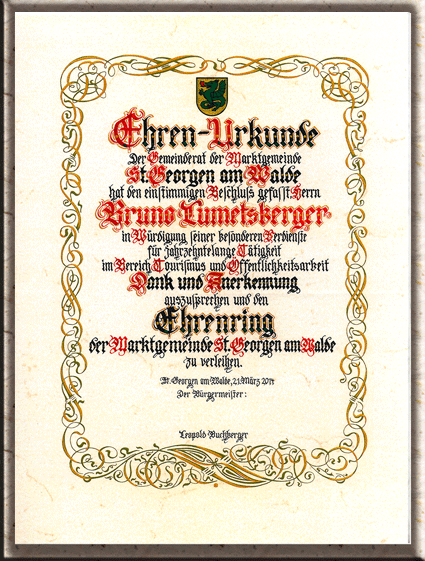 Ehren-Urkunde
Der Gemeinderat der Marktgemeinde
St. Georgen am Walde
hat den einstimmigen Beschluß gefaßt Herrn
Bruno Lumetsberger
in Würdigung seiner besonderen Verdienste
für jahrzehntelange Tätigkeit
im Bereich Tourismus und Öffentlichkeitsarbeit
Dank und Anerkennung
auszusprechen und den
Ehrenring
der Marktgemeinde St. Georgen am Walde
zu verleihen.
St. Georgen am Walde, 21. März 2014
Der Bürgermeister:
Leopold Buchberger